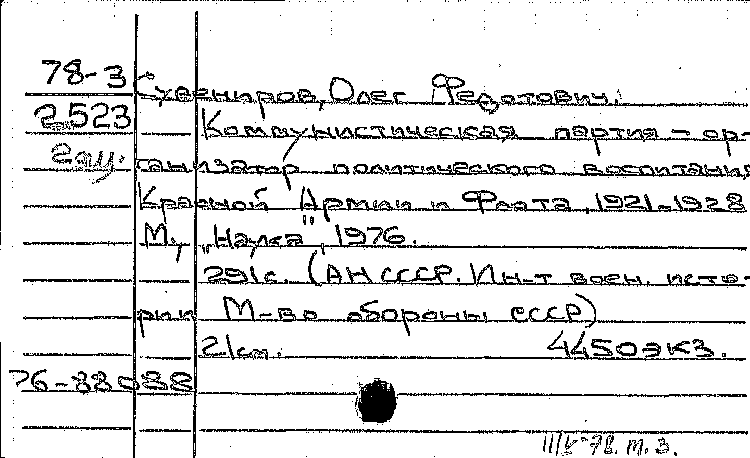 78-3 Сувениров, Олег Федотович.
2523 Коммунистическая партия - ор-
2оц. ганизатор политического воспитания
Красной Армии и Флота, 1921-1928
М., „Наука", 1976.
291с. (АН СССР. Ин-т воен. исто-
рии М-во обороны СССР)
21см. 4450экз.
76-88088
78. т. 3.